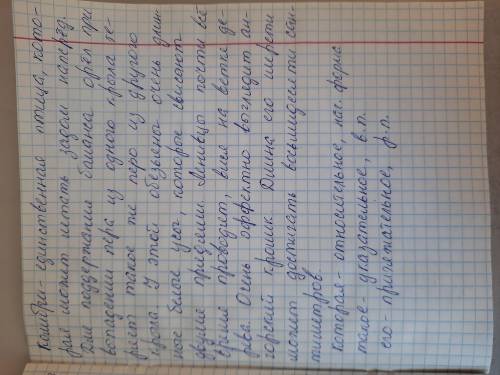 Колибри - единственная птица, кото-
рая может летать задом наперёд.
Для поддержания баланса орёл при
выпадении пера из одного крыла те-
ряет такое же перо из другого
крыла. У этой обезьяны очень длин-
ные белые усы, которые свисают
двумя прядями. Ленивцы почти всё
время проводят, вися на ветке де-
рева. Очень эффектно выглядит ан-
горский кролик. Длина его шерсти
может достигать восьмидесяти сан-
тиметров
Которая - относительное, нач. форма
такое - указательное, в.п.
его - притяжательное, р.п.